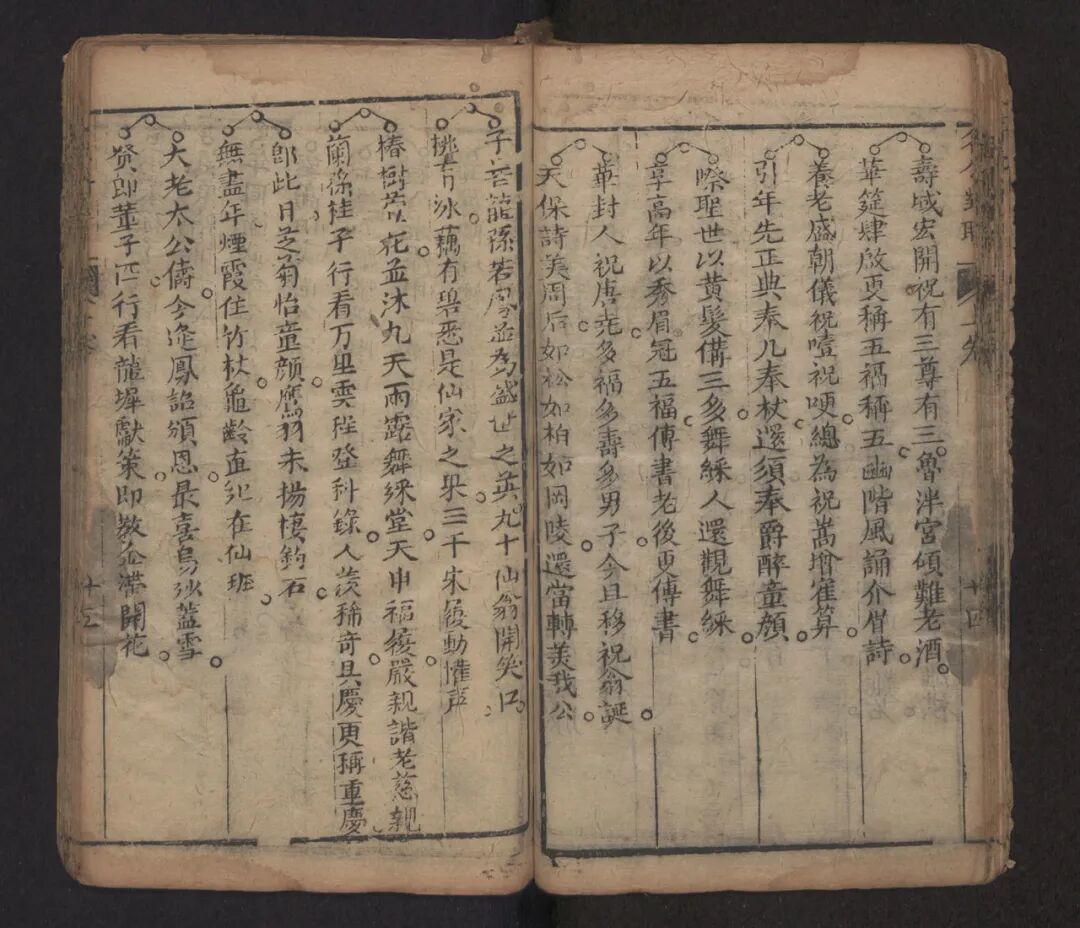 壽域宏開祝有三尊有三魯泮宮頌難老酒
華筵肆啟更稱五福稱五豳階風誦介眉詩
養老盛朝儀祝噎祝哽總為祝嵩增崔算
引年先正典奉几奉杖還須奉爵醉童顏
際聖世以黃髮備三多舞綵人還觀舞綵
享高年以秀眉冠五福傳書老後更傳書
華封人祝唐尭多福多壽多男子今且移祝翁誕
天保詩美周后如松如柏如岡陵還當轉美我公
十四
子若龍孫若鳳並為盛世之英九十仙翁開笑口
有冰藕有兽悉是仙家之果三千朱履動懽声
椿樹萱花並沐九天雨露舞綵堂天申福履嚴親諧老慈親
蘭孫桂子行看万里雲程登科錄人羡稱奇具慶更稱重慶
即此日芝菊怡童顏鷹羽未揚棲釣石
無盡年煙霞住竹杖龜齡直北在仙班
大老太公儔今逢鳳詔頒恩最喜烏紗蓋雪
賢郎董子匹行看龍墀献策即教金帶開花
十五